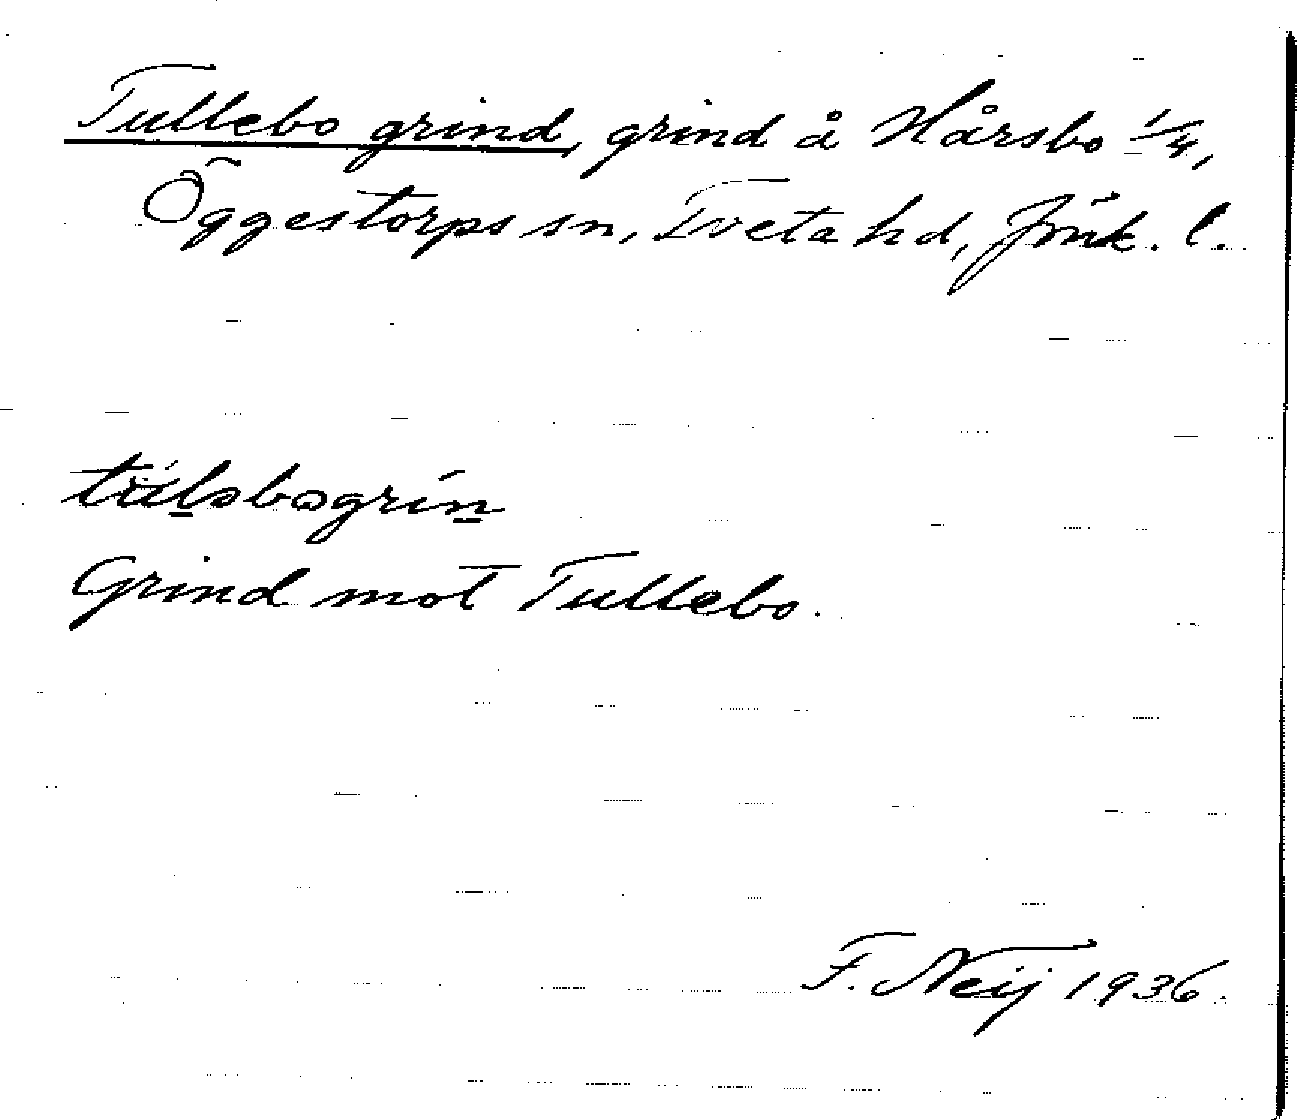 Tullebo grind, grind å Hårsbo 1/4,
Öggestorps sn, Tveta hd, Jönk. l.
Grind mot Tullebo.
F. Neij 1936.